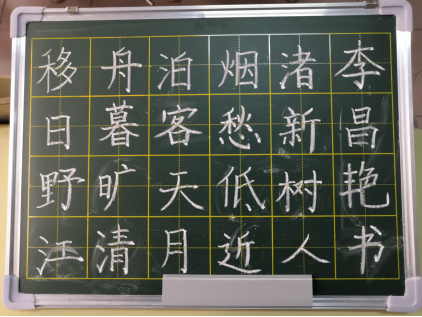 移舟泊烟渚李
日暮客愁新昌
野旷天低树艳
江清月近人书